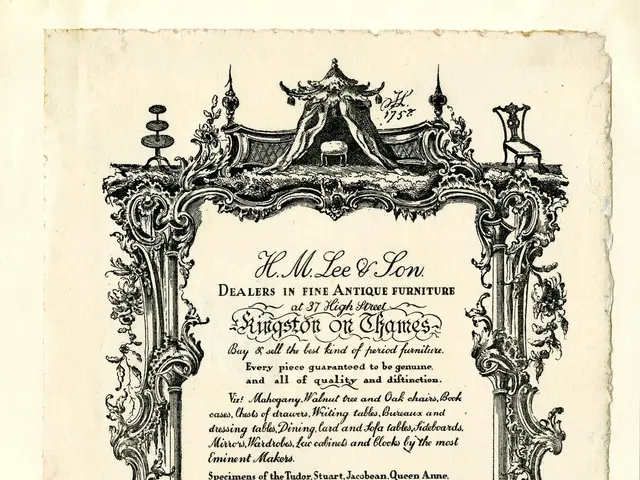 1752
H. M. Lee & Son.
DEALERS IN FINE ANTIQUE FURNITURE
at 37 High Street
Kingston on Thames
Buy & sell the best kind of period furniture.
Every piece guaranteed to be genuine,
and all of quality and distinction.
Viz! Mahogany, Walnut tree and Oak chairs, Book
cases, Chests of drawers, Writing tables, Bureaux and
dressing tables, Dining, Card and Sofa tables, Sideboards,
Mirrors, Wardrobes, Lac cabinets and Clocks by the most
Eminent Makers.
Specimens of the Tudor, Stuart, Jacobean, Queen Anne,